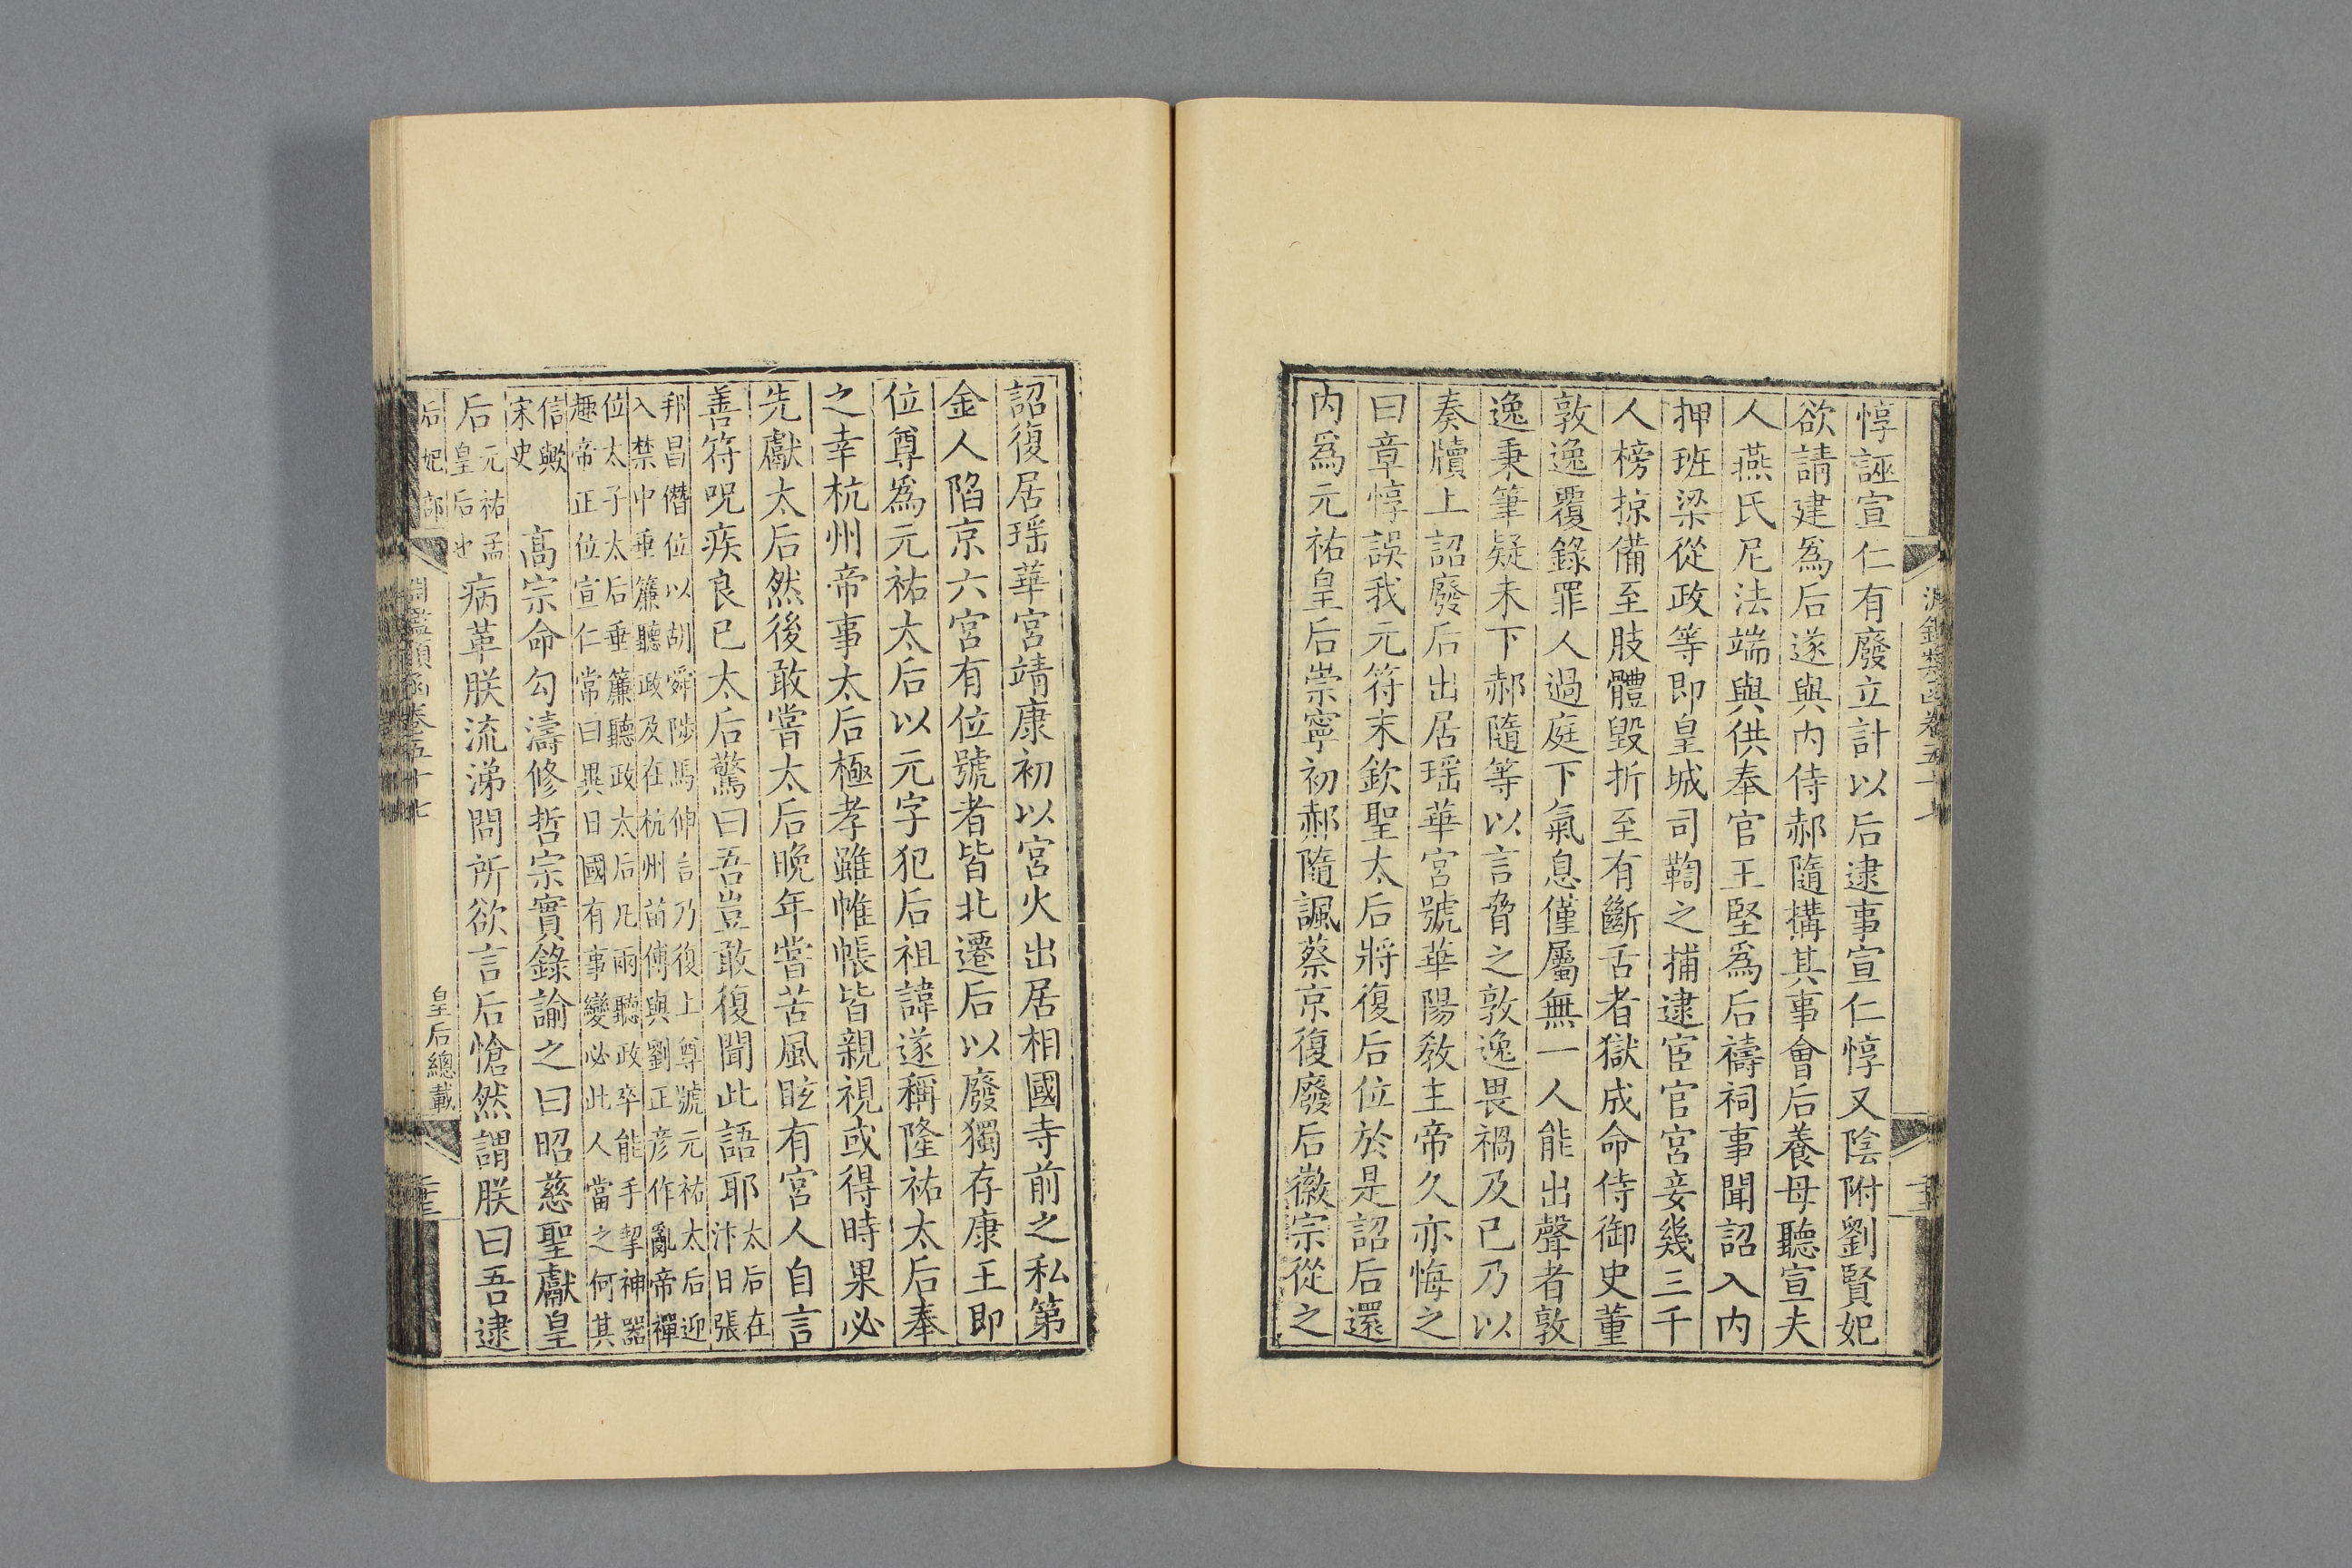 惇誣宣仁有廢立計以后逮事宣仁惇又陰附劉賢妃
欲請建爲后遂與内侍郝隨搆其事會后養母聽宣夫
人燕氏尼法端與供奉官王堅爲后禱祠事聞詔入内
押班梁從政等即皇城司鞫之捕逮宦官宮妾幾三千
人榜掠備至肢體毀折至有斷舌者獄成命侍御史董
敦逸覆錄罪人過庭下氣息僅屬無一人能出聲者敦
逸秉筆疑未下郝隨等以言脅之敦逸畏禍及已乃以
奏牘上詔廢后出居瑶華宮號華陽教主帝久亦悔之
曰章惇誤我元符末欽聖太后將復后位於是詔后還
内爲元祐皇后崇寧初郝隨諷蔡京復廢后徽宗從之
詔復居瑶華宮靖康初以宮火出居相國寺前之私第
金人陷京六宮有位號者皆北遷后以廢獨存康王即
位尊爲元祐太后以元字犯后祖諱遂稱隆祐太后奉
之幸杭州帝事太后極孝雖帷帳皆親視或得時果必
先獻太后然後敢嘗太后晩年嘗苦風眩有宮人自言
善符呪疾良已太后驚曰吾豈敢復聞此語耶
太后在
汴日張
邦昌僭位以胡舜陟馬伸言乃復上尊號元祐太后迎
入禁中垂簾聽政及在杭州苗傅與劉正彦作亂帝禪
位太子太后垂簾聽政太后凡兩聽政卒能手挈神器
極帝正位宣仁常曰異日國有事變必此人當之何其
信歟
宋史
高宗命勾濤修哲宗實錄諭之曰昭慈聖獻皇
后
元祐孟
皇后也
病革朕流涕問所欲言后愴然謂朕曰吾逮
后妃部
淵鑑類函卷五十七
皇后總載